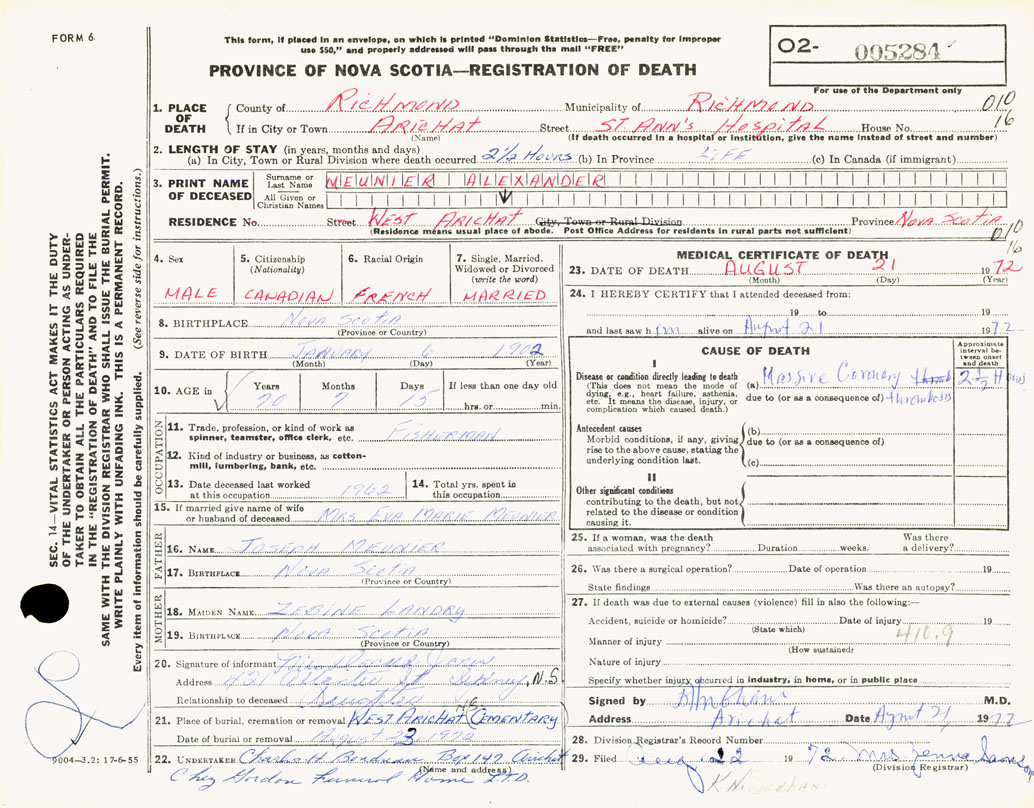 FORM 6
This form, if placed in an envelope, on which is printed "Dominion Statistics—Free, penalty for improper
use $50," and properly addressed will pass through the mail "FREE"
PROVINCE OF NOVA SCOTIA—REGISTRATION OF DEATH
O2- 005284
For use of the Department only
010
16
1. PLACE OF DEATH
County of RICHMOND Municipality of RICHMOND
If in City or Town ARICHAT Street ST ANN'S HOSPITAL House No.
(Name) (If death occurred in a hospital or institution, give the name instead of street and number)
2. LENGTH OF STAY (in years, months and days)
(a) In City, Town or Rural Division where death occurred 2 1/2 HOURS (b) In Province LIFE (c) In Canada (if immigrant)
3. PRINT NAME OF DECEASED
Surname or Last Name MEUNIER ALEXANDER
All Given or Christian Names
RESIDENCE No. Street WEST ARICHAT City, Town or Rural Division Province NOVA SCOTIA
(Residence means usual place of abode. Post Office Address for residents in rural parts not sufficient)
010
16
4. Sex
MALE
5. Citizenship (Nationality)
CANADIAN
6. Racial Origin
FRENCH
7. Single, Married, Widowed or Divorced (write the word)
MARRIED
8. BIRTHPLACE NOVA SCOTIA
(Province or Country)
9. DATE OF BIRTH JANUARY 6 1902
(Month) (Day) (Year)
10. AGE in Years Months Days If less than one day old
70 7 15 hrs. or min.
OCCUPATION
11. Trade, profession, or kind of work as
spinner, teamster, office clerk, etc. FISHERMAN
12. Kind of industry or business, as cotton-
mill, lumbering, bank, etc.
13. Date deceased last worked
at this occupation 1962
14. Total yrs. spent in
this occupation
15. If married give name of wife
or husband of deceased MRS EVA MARIE MEUNIER
FATHER
16. NAME JOSEPH MEUNIER
17. BIRTHPLACE NOVA SCOTIA
(Province or Country)
MOTHER
18. MAIDEN NAME ZEBINE LANDRY
19. BIRTHPLACE NOVA SCOTIA
(Province or Country)
20. Signature of informant
Address 421 Atlantic St Sydney, N.S.
Relationship to deceased
21. Place of burial, cremation or removal WEST ARICHAT CEMENTARY
Date of burial or removal August 23 1972
22. UNDERTAKER Charles H Boudreau Box 147 Arichat
(Name and address)
Chez Gordon Funeral Home LTD.
MEDICAL CERTIFICATE OF DEATH
23. DATE OF DEATH AUGUST 21 1972
(Month) (Day) (Year)
24. I HEREBY CERTIFY that I attended deceased from:
19 to 19
and last saw him alive on August 21 1972
CAUSE OF DEATH
Approximate interval between onset and death
I
Disease or condition directly leading to death
(This does not mean the mode of
dying, e.g., heart failure, asthenia,
etc. It means the disease, injury, or
complication which caused death.)
(a) Massive Coronary thromb 2 1/2 Hours
due to (or as a consequence of) thrombosis
Antecedent causes
Morbid conditions, if any, giving
rise to the above cause, stating the
underlying condition last.
(b)
due to (or as a consequence of)
(c)
II
Other significant conditions
contributing to the death, but not
related to the disease or condition
causing it.
25. If a woman, was the death
associated with pregnancy? Duration weeks. Was there
a delivery?
26. Was there a surgical operation? Date of operation 19
State findings Was there an autopsy?
27. If death was due to external causes (violence) fill in also the following:—
Accident, suicide or homicide? Date of injury 19
(State which)
410.9
Manner of injury
(How sustained)
Nature of injury
Specify whether injury occurred in industry, in home, or in public place
Signed by M.D.
Address Arichat Date August 21 1972
28. Division Registrar's Record Number
29. Filed Aug. 22 1972 Mrs
(Division Registrar)
9004-3.2: 17-6-55
SEC. 14—VITAL STATISTICS ACT MAKES IT THE DUTY
OF THE UNDERTAKER OR PERSON ACTING AS UNDER-
TAKER TO OBTAIN ALL THE PARTICULARS REQUIRED
IN THE "REGISTRATION OF DEATH" AND TO FILE THE
SAME WITH THE DIVISION REGISTRAR WHO SHALL ISSUE THE BURIAL PERMIT.
WRITE PLAINLY WITH UNFADING INK. THIS IS A PERMANENT RECORD.
Every item of information should be carefully supplied. (See reverse side for instructions.)